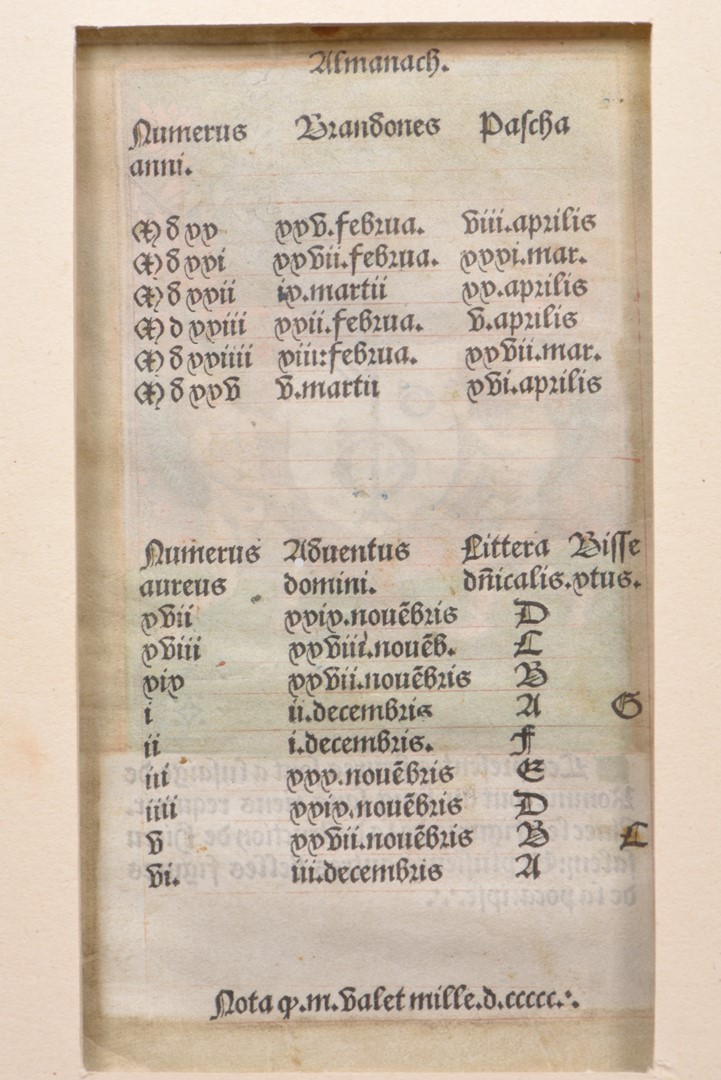 Almanach.
Numerus Brandones Pascha
anni.
M d xx xxv.februa. viii.aprilis
M d xxi xxvii.februa. xxxi.mar.
M d xxii ix.martii xx.aprilis
M d xxiii xxii.februa. v.aprilis
M d xxiiii xiiii:februa. xxvii.mar.
M d xxv v.martii xvi.aprilis
Numerus Aduentus Littera Bisse
aureus domini. dñicalis. xtus.
xvii xxix.nouẽbris D
xviii xxviii.nouẽb. C
xix xxvii.nouẽbris B
i ii.decembris A G
ii i.decembris. F
iii xxx.nouẽbris E
iiii xxix.nouẽbris D
v xxvii.nouẽbris B C
vi. iii.decembris A
Nota ꝙ.m.valet mille.d.ccccc.∴